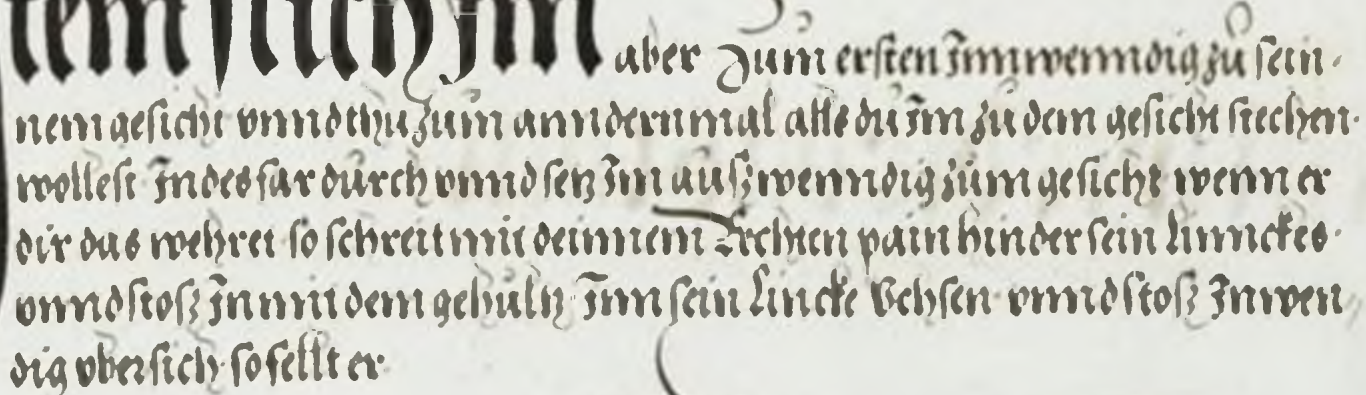 tem stich Im aber Zum ersten Innwenndig zu sein
nem gesicht vnnd thu zum anndernmal alls du Im zu dem gesicht stechen
wollest Indes far durch vnnd setz Im außwenndig zum gesicht wenn er
dir das wehret so schreit mit deinnem Rechten pain hinder sein linnckes
vnnd stoß In mit dem gehultz Inn sein lincke Vchsen vnnd stoß Inwen
dig vbersich so fellt er